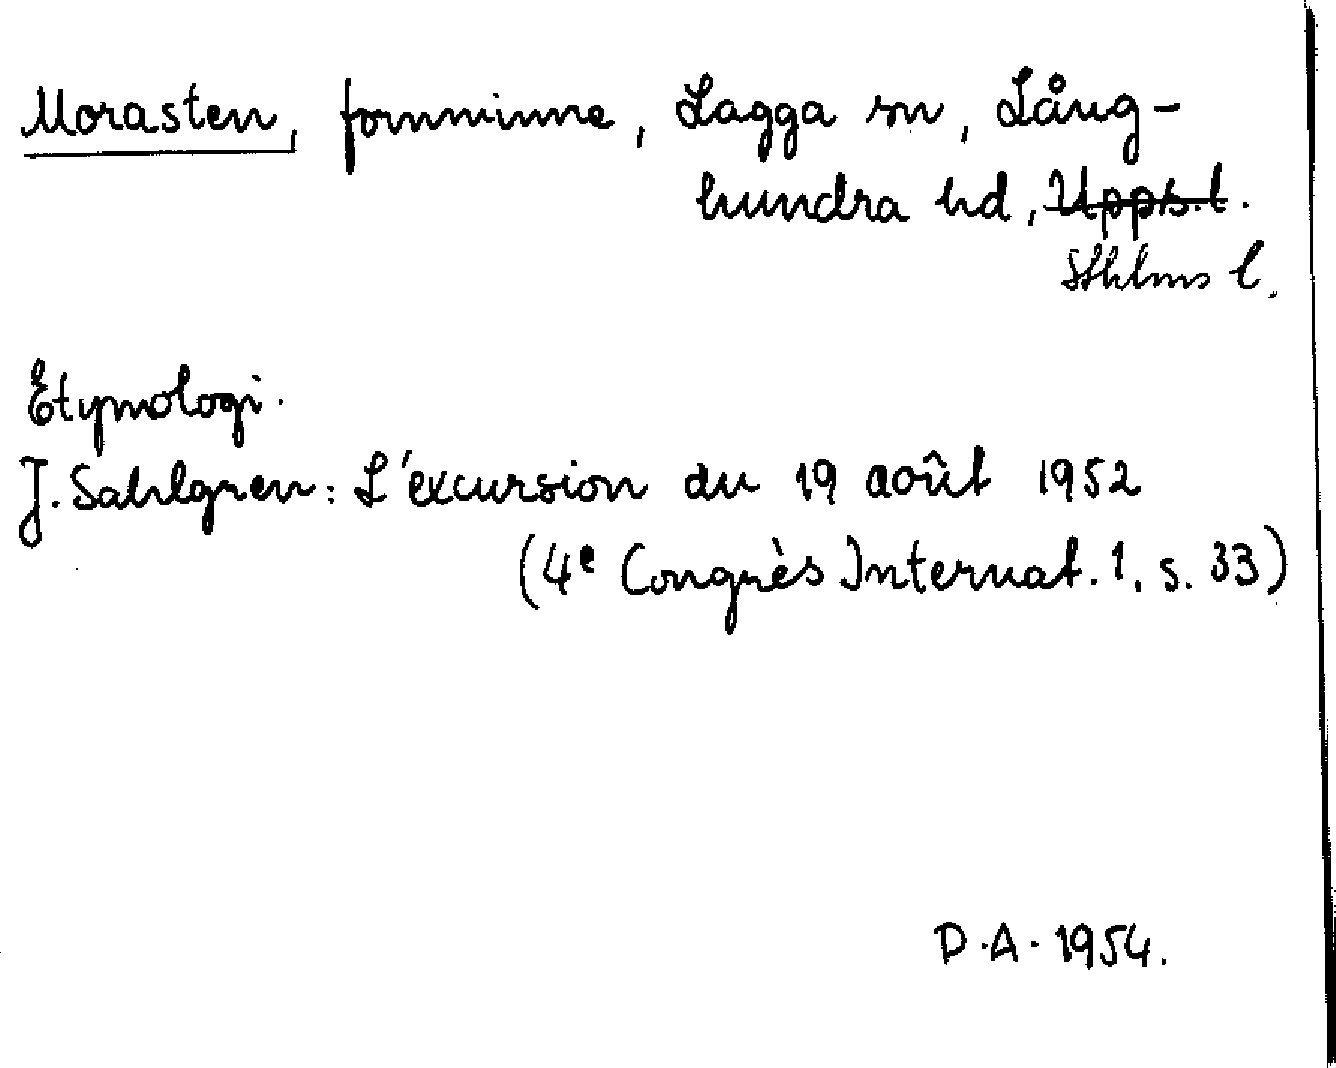 Morasten, fornminne, Lagga sn, Lång-
hundra hd, Upps. l.
Sthlms l.
Etymologi.
J. Sahlgren: L'excursion du 19 août 1952
(4e Congrès Internat. 1, s. 33)
D.A. 1954.